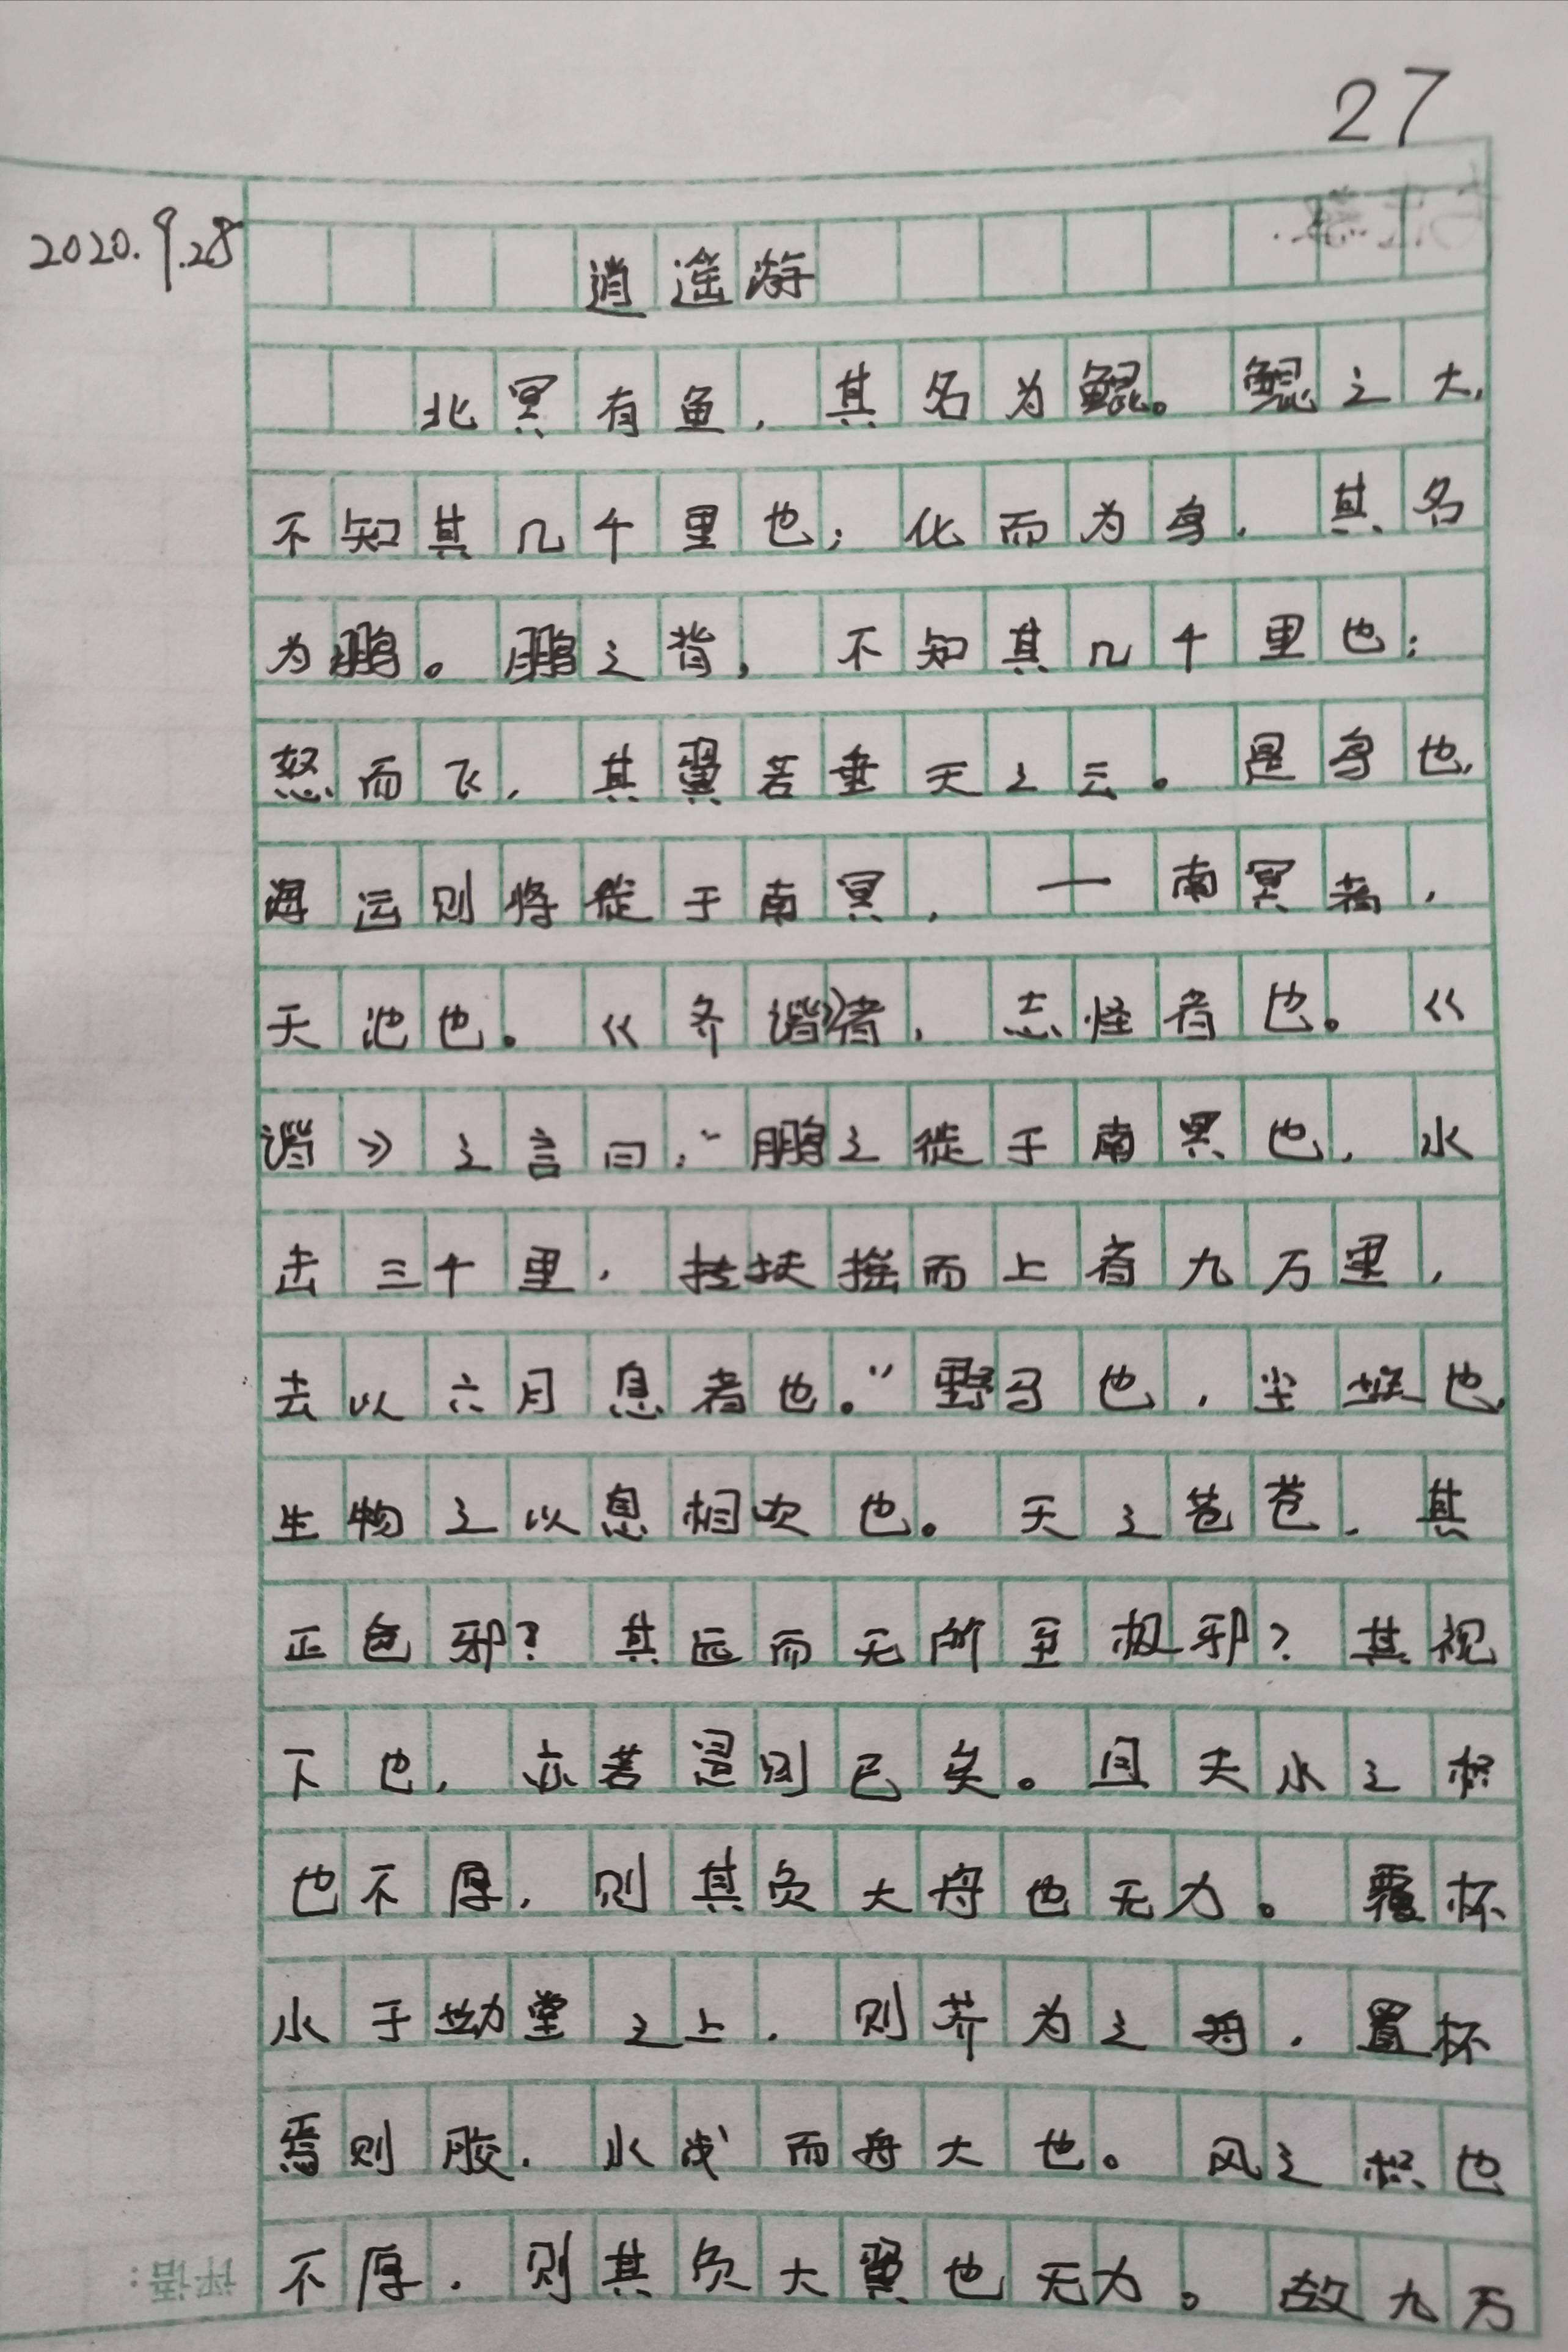 27
2020.9.28
逍遥游
北冥有鱼，其名为鲲。鲲之大，
不知其几千里也；化而为鸟，其名
为鹏。鹏之背，不知其几千里也；
怒而飞，其翼若垂天之云。是鸟也，
海运则将徙于南冥，一南冥者，
天池也。《齐谐》者，志怪者也。《
谐》之言曰：“鹏之徙于南冥也，水
击三千里，抟扶摇而上者九万里，
去以六月息者也。”野马也，尘埃也，
生物之以息相吹也。天之苍苍，其
正色邪？其远而无所至极邪？其视
下也，亦若是则已矣。且夫水之积
也不厚，则其负大舟也无力。覆杯
水于坳堂之上，则芥为之舟，置杯
焉则胶，水浅而舟大也。风之积也
不厚，则其负大翼也无力。故九万
评语：